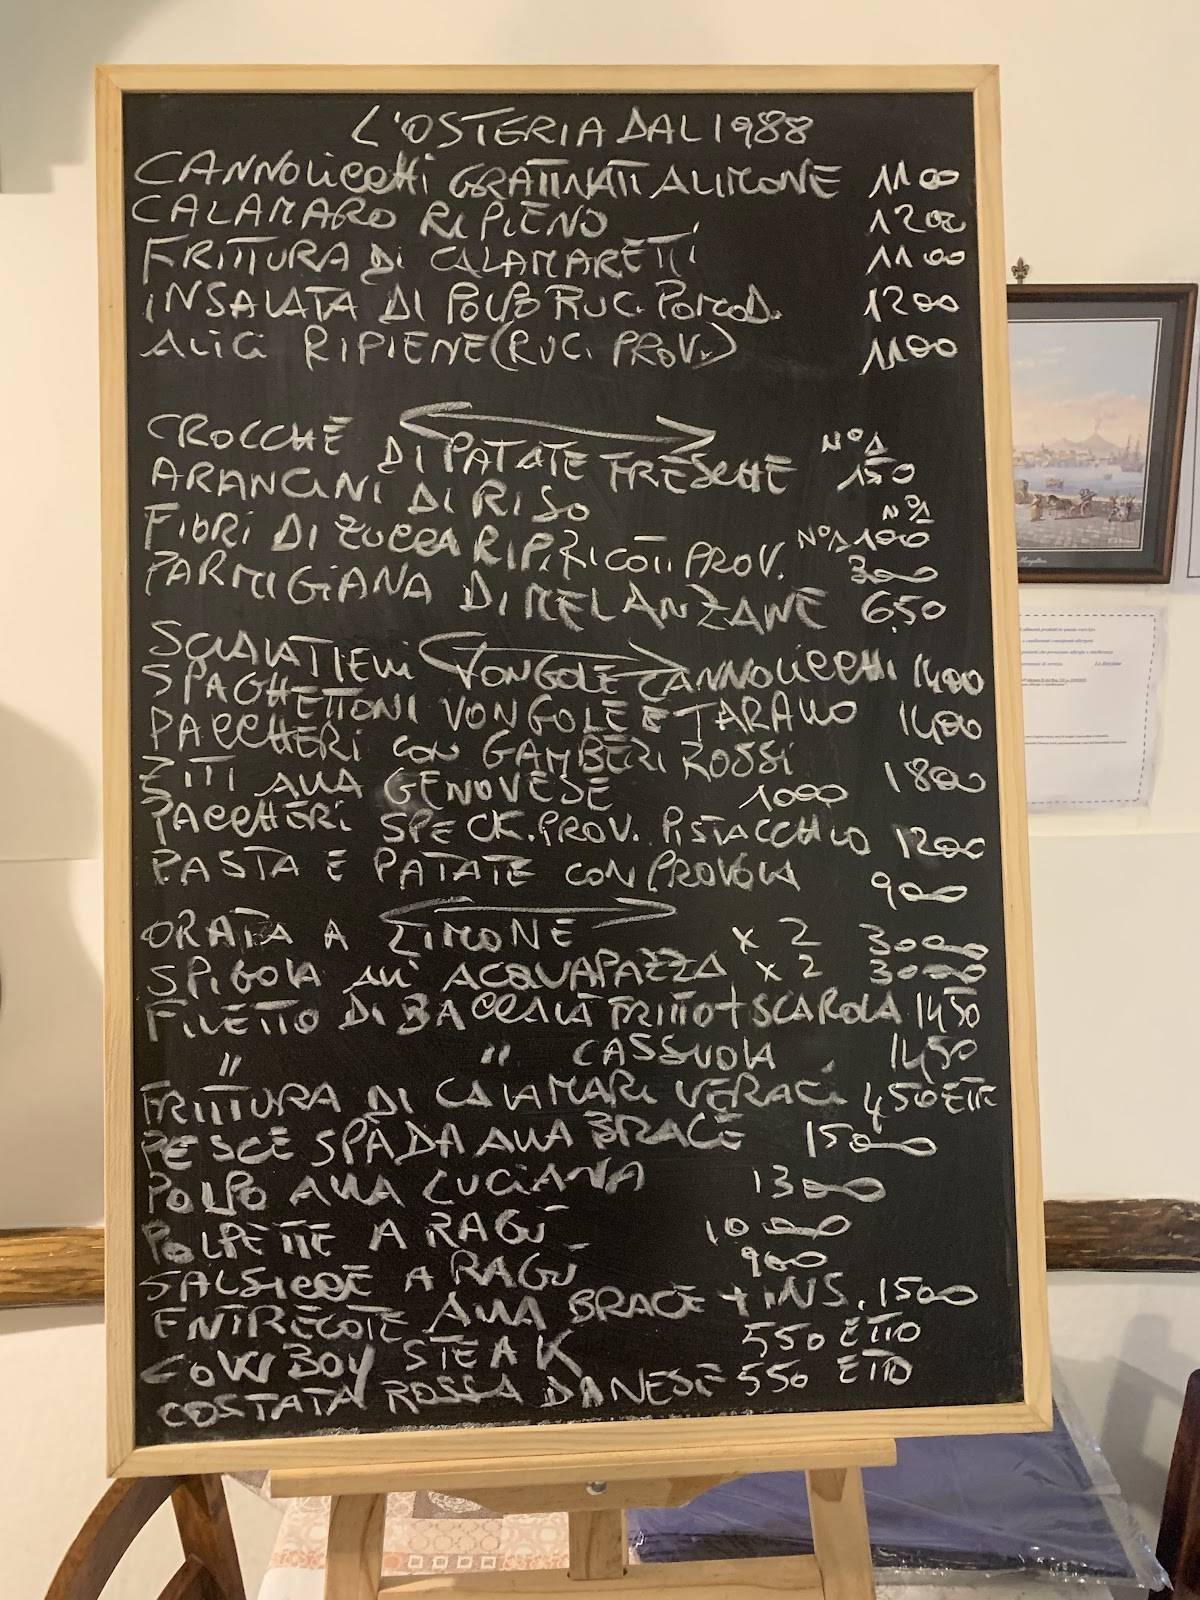 L'OSTERIA DAL 1988
CANNOLICCHI GRATINATI AL LIMONE 1100
CALAMARO RIPIENO 1200
FRITTURA DI CALAMARETTI 1100
INSALATA DI POLPO RUC. POMOD. 1200
ALICI RIPIENE (RUC. PROV.) 1100
CROCCHÈ DI PATATE FRESCHE N°1 150
ARANCINI DI RISO N°1 100
FIORI DI ZUCCA RIP. RICOTTA PROV. N°1 300
PARMIGIANA DI MELANZANE 6,50
SCIALATIELLI VONGOLE CANNOLICCHI 1400
SPAGHETTONI VONGOLE E TARALLO 1400
PACCHERI CON GAMBERI ROSSI 1800
ZITI ALLA GENOVESE 1000
PACCHERI SPECK. PROV. PISTACCHIO 1200
PASTA E PATATE CON PROVOLA 900
ORATA A LIMONE x 2 3000
SPIGOLA ALL' ACQUAPAZZA x 2 3000
FILETTO DI BACCALÀ FRITTO + SCAROLA 1450
" " CASSUOLA 1450
FRITTURA DI CALAMARI VERACI 450 ETTO
PESCE SPADA ALLA BRACE 1500
POLPO ALLA LUCIANA 1300
POLPETTE A RAGÙ 1000
SALSICCE A RAGÙ 900
ENTRECOTE ALLA BRACE + INS. 1500
COWBOY STEAK 550 ETTO
COSTATA ROSSA DANESE 550 ETTO